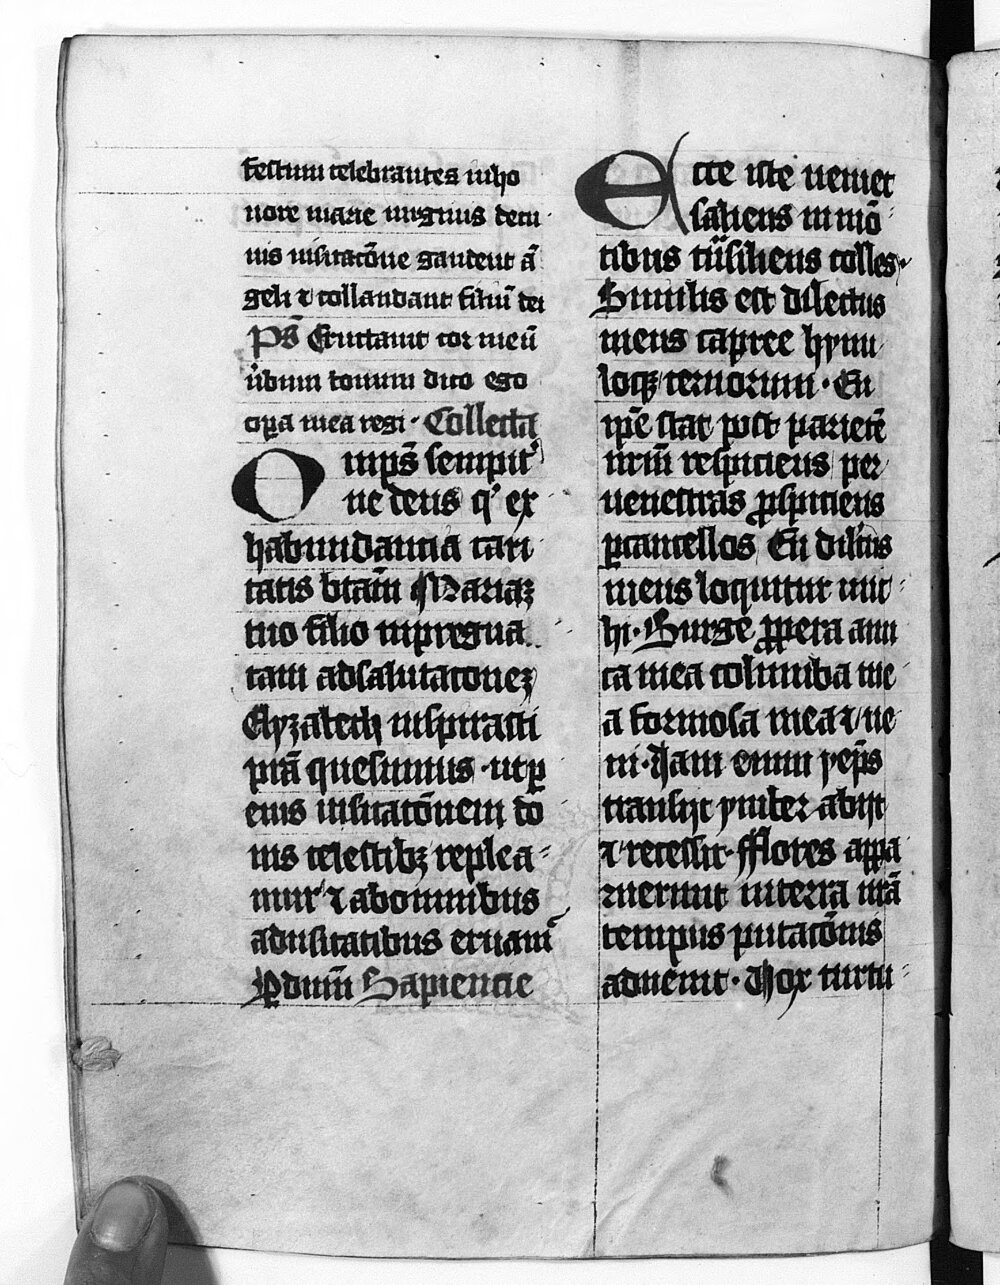 festum celebrantes in ho
nore marie uirginis de cu
ius uisitacōne gaudent ā
geli ⁊ collaudant filiū dei
Pꝰ Eructauit cor meū
ūbum bonum dico ego
oꝑa mea regi · Collecta
Omps̄ sempit͛
ne deus qͥ ex
habundancia cari
tatis btām Mariaꝫ
tuo filio inpregna
tam ad salutaconeꝫ
Elyzabeth inspirasti
pr̄a quesumus · ut ꝑ
eius uisitacōnem do
nis celestibꝫ replea
mur ⁊ ab omnibus
aduersitatibus eruam͛
ꝑ dnm̄ Sapiencie
Ecce iste ueniet
saliens in mō
tibus tͣnsiliens colles ·
Similis est dilectus
meus capree hynu
loqꝫ ceruorum · En
ip̄e stat post parietē
nrm̄ respiciens per
uenestras ꝓspiciens
ꝑ cancellos En dilc̄us
meus loquitur mi
hi · Surge ꝓpera ami
ca mea columba me
a formosa mea ⁊ ue
ni · Iam enim yeps̄
transijt ymber abijt
⁊ recessit · fflores appa
ruerunt in terra nrā
tempus putacōnis
aduenit · Uox turtu